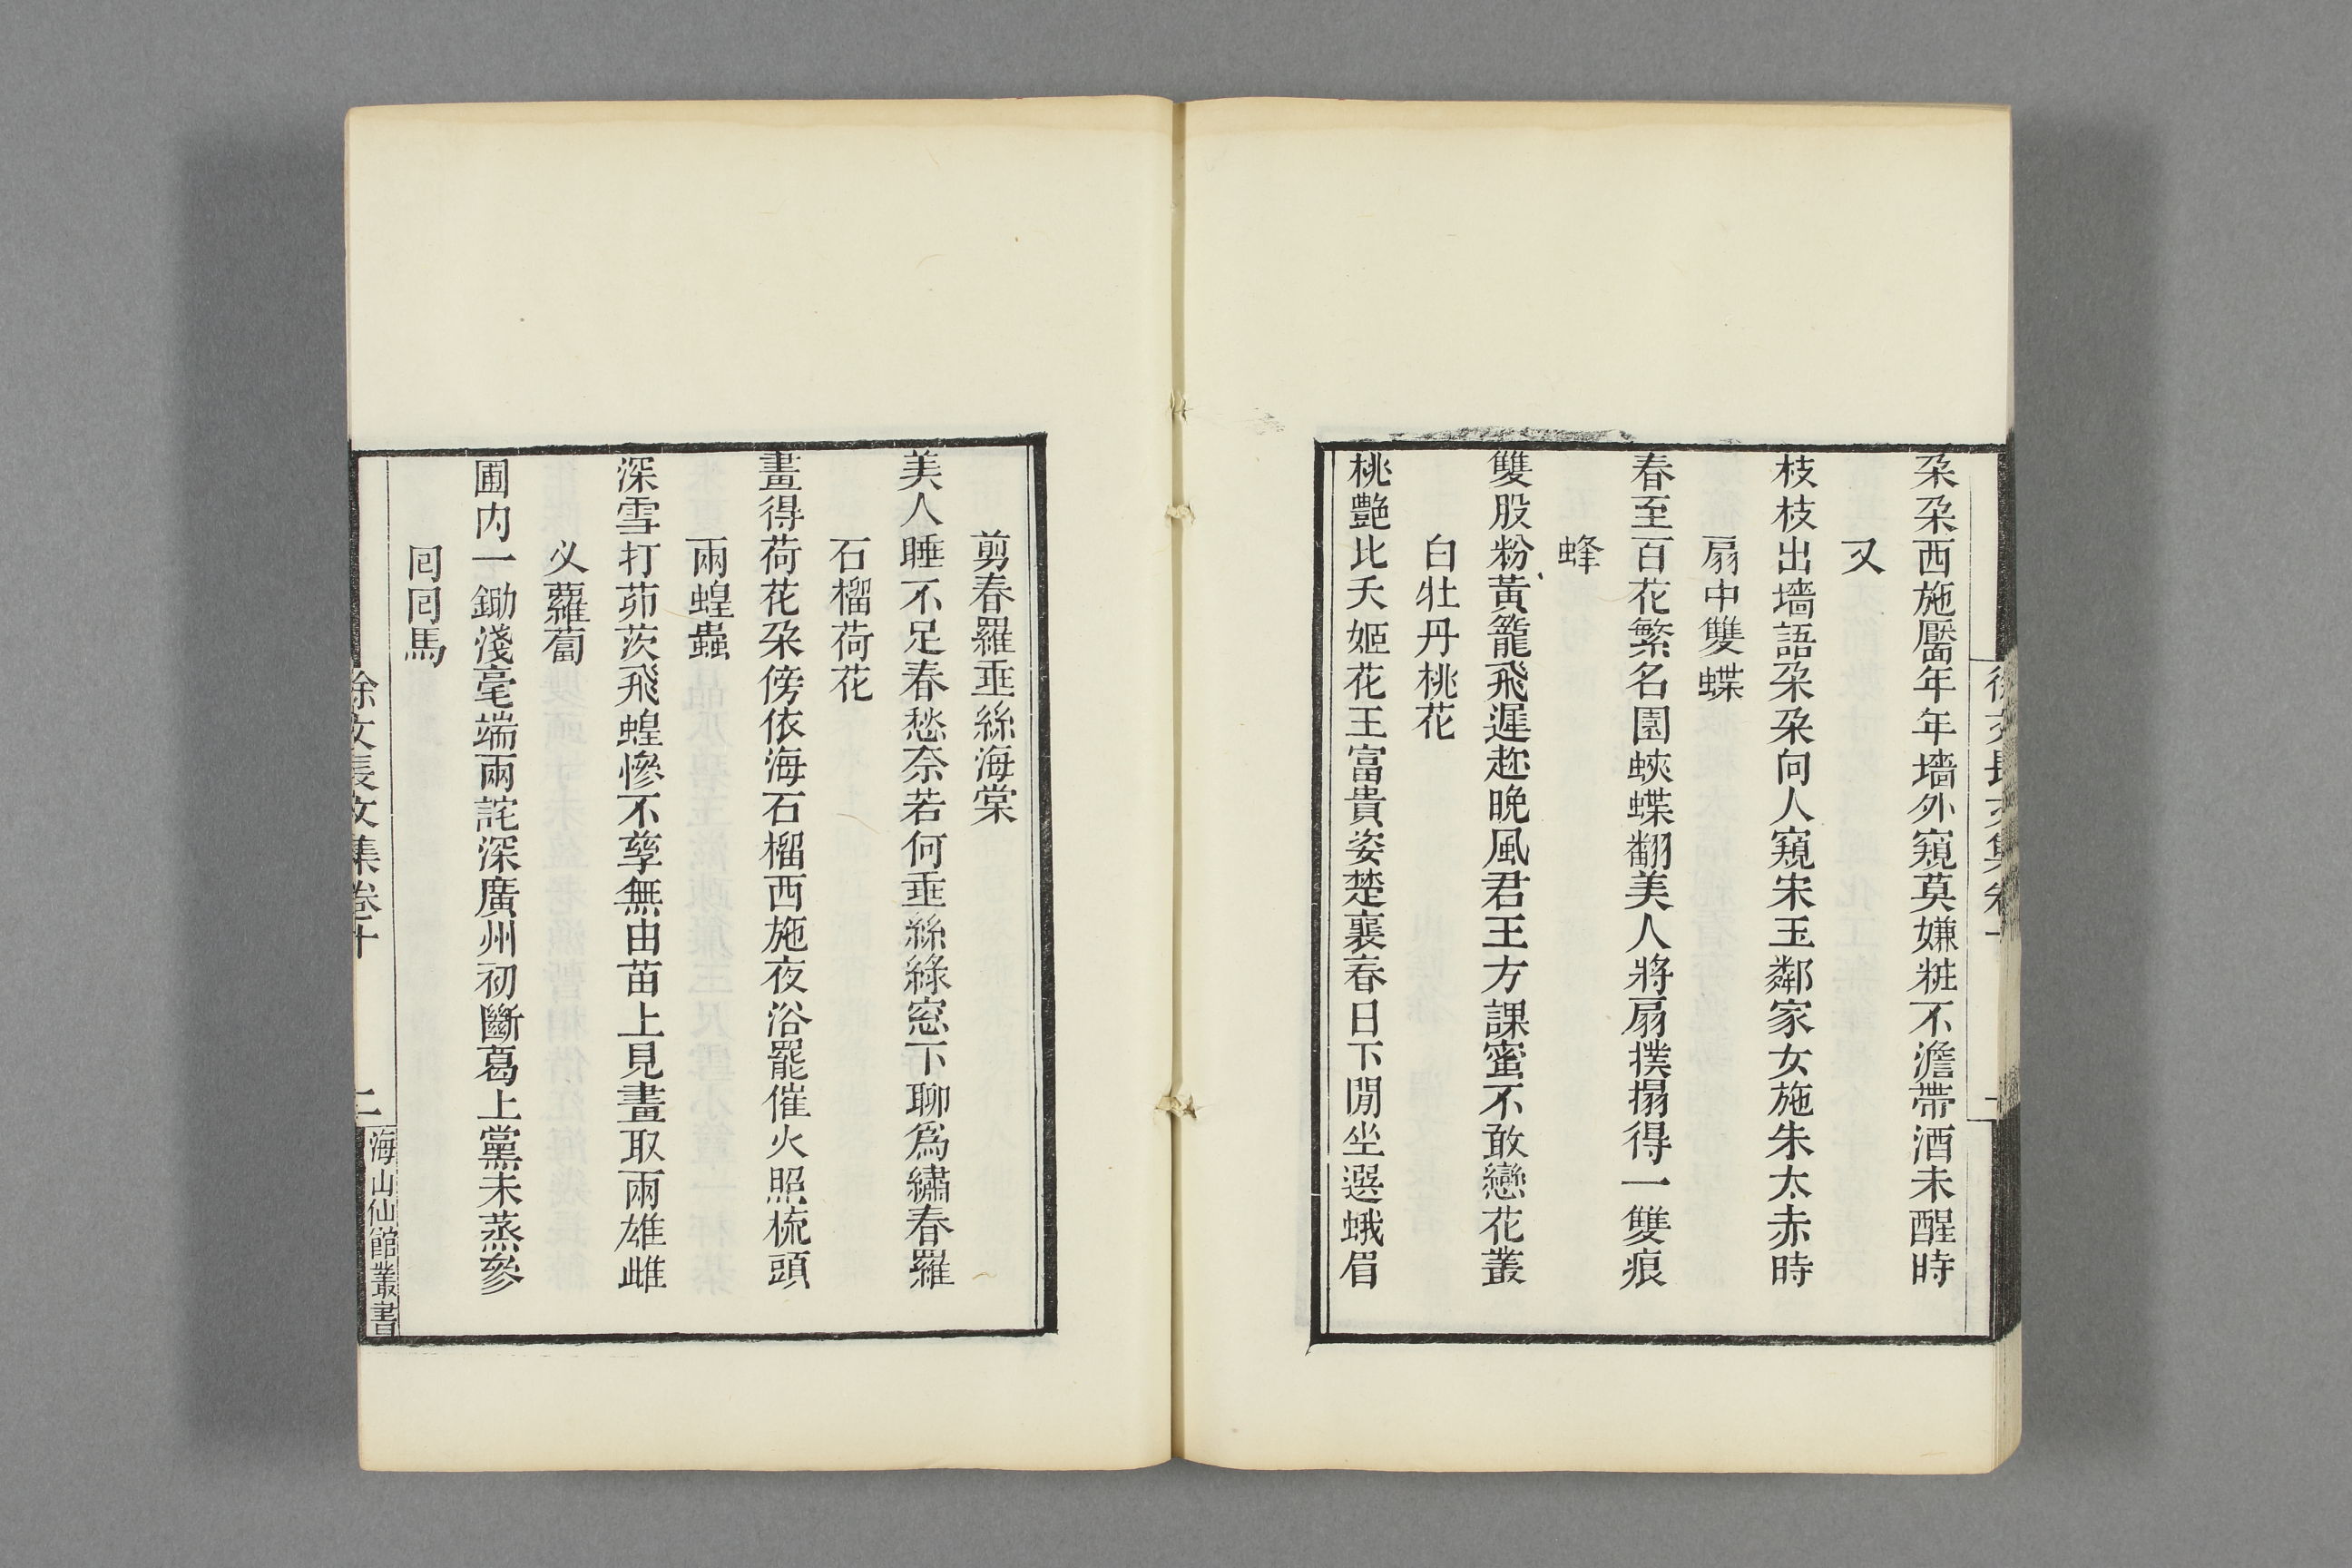 朶朶西施靨年年墻外窺莫嫌粧不澹帶酒未醒時
又
枝枝出墻語朶朶向人窺宋玉鄰家女施朱太赤時
扇中雙蝶
春至百花繁名園蛺蝶翻美人將扇撲搨得一雙痕
蜂
雙股粉黃籠飛遲趂晚風君王方課蜜不敢戀花叢
白牡丹桃花
桃艶比夭姬花王富貴姿楚襄春日下閒坐選蛾眉
剪春羅垂絲海棠
美人睡不足春愁奈若何垂絲綠窓下聊爲繡春羅
石榴荷花
畫得荷花朶傍依海石榴西施夜浴罷催火照梳頭
兩蝗蟲
深雪打茆茨飛蝗慘不孳無由苗上見畫取兩雄雌
乂蘿蔔
圃内一鋤淺毫端兩詫深廣州初斷葛上黨未蒸參
囘囘馬
徐文長文集卷十
二
海山仙館叢書